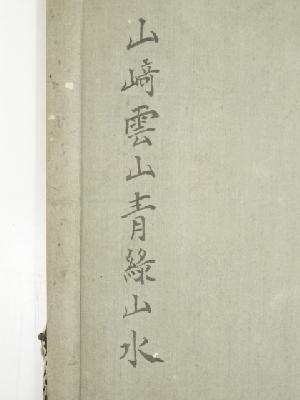 山﨑雲山青緑山水